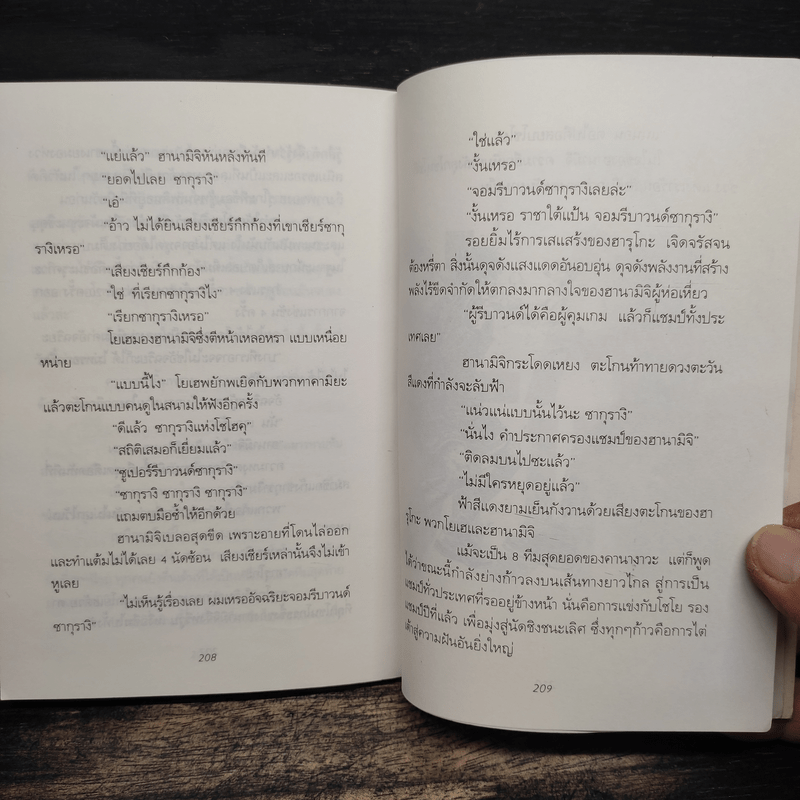 "แย่แล้ว" ฮานามิจิหันหลังทันที
"ยอดไปเลย ซากุรางิ"
"เอ๋"
"อ้าว ไม่ได้ยินเสียงเชียร์กึกก้องที่เขาเชียร์ซากุ
รางิเหรอ"
"เสียงเชียร์กึกก้อง"
"ใช่ ที่เรียกซากุรางิไง"
"เรียกซากุรางิเหรอ"
โยเฮมองฮานามิจิซึ่งตีหน้าเหลอหรา แบบเหนื่อย
หน่าย
"แบบนี้ไง" โยเฮพยักพเยิดกับพวกทาคามิยะ
แล้วตะโกนแบบคนดูในสนามให้ฟังอีกครั้ง
"ดีแล้ว ซากุรางิแห่งโชโฮคุ"
"สถิติเสมอก็เยี่ยมแล้ว"
"ซูเปอร์รีบาวนด์ซากุรางิ"
"ซากุรางิ ซากุรางิ ซากุรางิ"
แถมตบมือซ้ำให้อีกด้วย
ฮานามิจิเบลอสุดขีด เพราะอายที่โดนไล่ออก
และทำแต้มไม่ได้เลย 4 นัดซ้อน เสียงเชียร์เหล่านั้นจึงไม่เข้า
หูเลย
"ไม่เห็นรู้เรื่องเลย ผมเหรออัจฉริยะจอมรีบาวนด์
ซากุรางิ"
208
"ใช่แล้ว"
"งั้นเหรอ"
"จอมรีบาวนด์ซากุรางิเลยล่ะ"
"งั้นเหรอ ราชาใต้แป้น จอมรีบาวนด์ซากุรางิ"
รอยยิ้มไร้การเสแสร้งของฮารุโกะ เจิดจรัสจน
ต้องหรี่ตา สิ่งนั้นดุจดังแสงแดดอันอบอุ่น ดุจดังพลังงานที่สร้าง
พลังไร้ขีดจำกัดให้ตกลงมากลางใจของฮานามิจิผู้ห่อเหี่ยว
"ผู้รีบาวนด์ได้คือผู้คุมเกม แล้วก็แชมป์ทั้งประ
เทศเลย"
ฮานามิจิกระโดดเหยง ตะโกนท้าทายดวงตะวัน
สีแดงที่กำลังจะลับฟ้า
"แน่วแน่แบบนั้นไว้นะ ซากุรางิ"
"นั่นไง คำประกาศครองแชมป์ของฮานามิจิ"
"ติดลมบนไปซะแล้ว"
"ไม่มีใครหยุดอยู่แล้ว"
ฟ้าสีแดงยามเย็นกังวานด้วยเสียงตะโกนของฮา
รุโกะ พวกโยเฮและฮานามิจิ
แม้จะเป็น 8 ทีมสุดยอดของคานางาวะ แต่ก็พูด
ได้ว่าขณะนี้กำลังย่างก้าวลงบนเส้นทางยาวไกล สู่การเป็น
แชมป์ทั่วประเทศที่รออยู่ข้างหน้า นั่นคือการแข่งกับโชโย รอง
แชมป์ปีที่แล้ว เพื่อมุ่งสู่นัดชิงชนะเลิศ ซึ่งทุกๆก้าวคือการไต่
เต้าสู่ความฝันอันยิ่งใหญ่
209